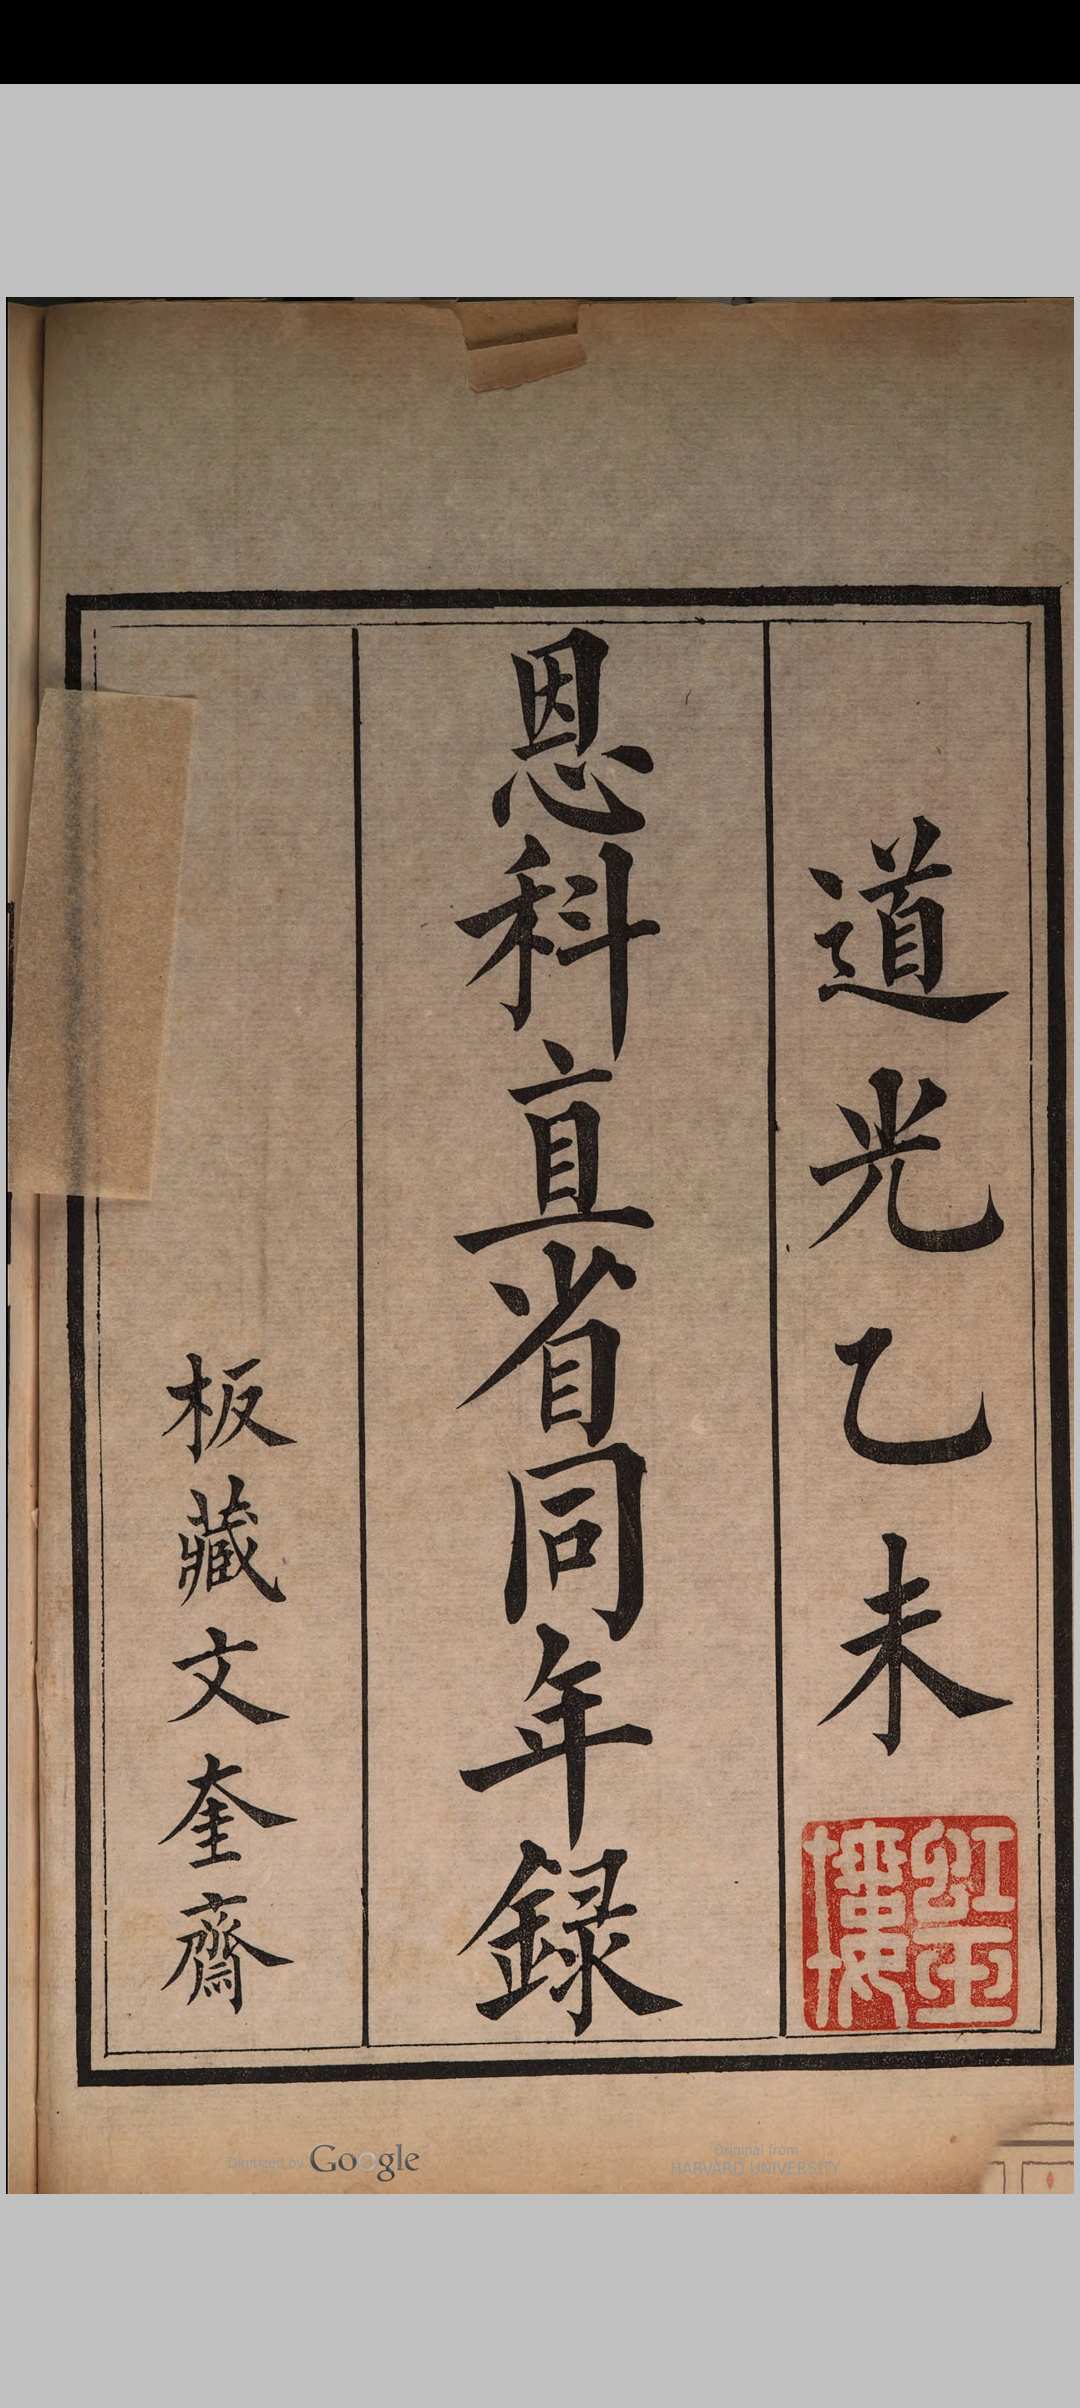 道光乙未
恩科直省同年録
板藏文奎齋
虹玉樓
Digitized by Google
Original from
HARVARD UNIVERSITY